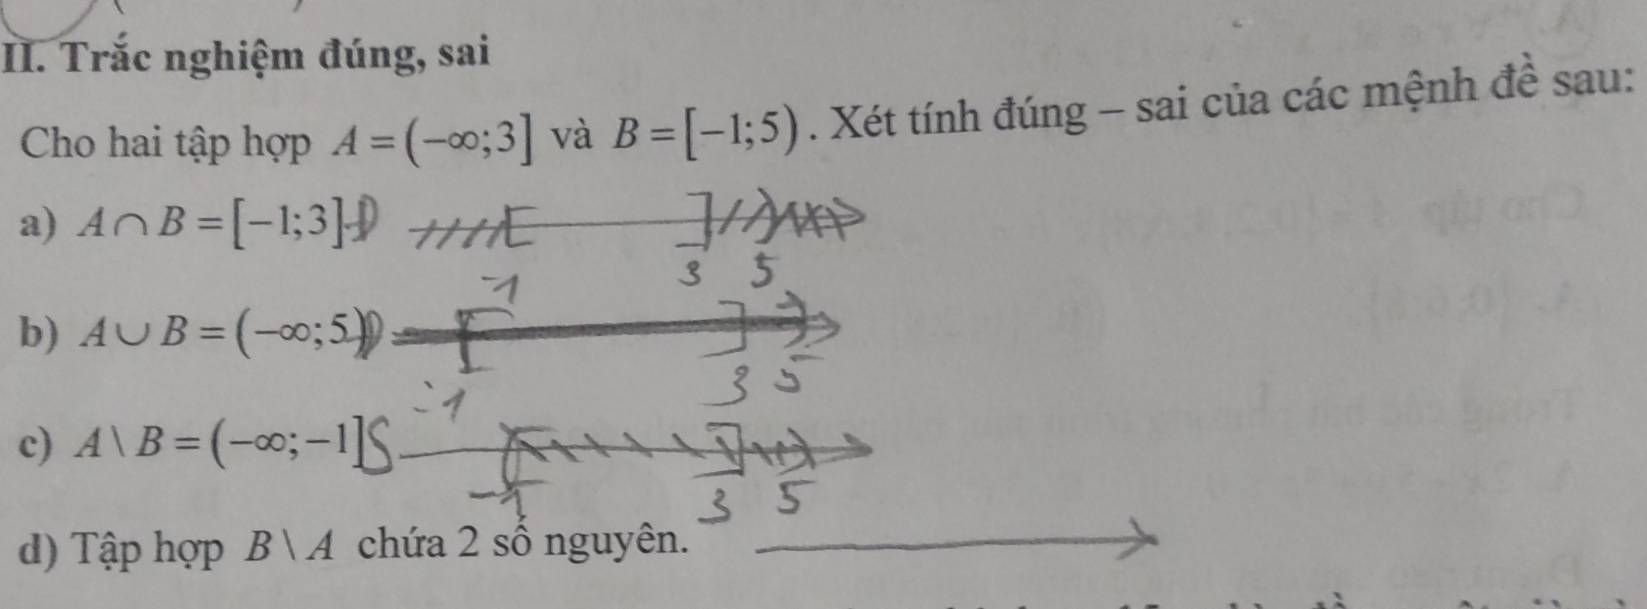 II. Trắc nghiệm đúng, sai
Cho hai tập hợp A = (−∞;3] và B = [−1;5). Xét tính đúng – sai của các mệnh đề sau:
a) A ∩ B = [−1;3] Đ
3 5
-1
b) A ∪ B = (−∞;5) Đ
3 5
-1
c) A \ B = (−∞;−1] S
-1 3 5
d) Tập hợp B \ A chứa 2 số nguyên.